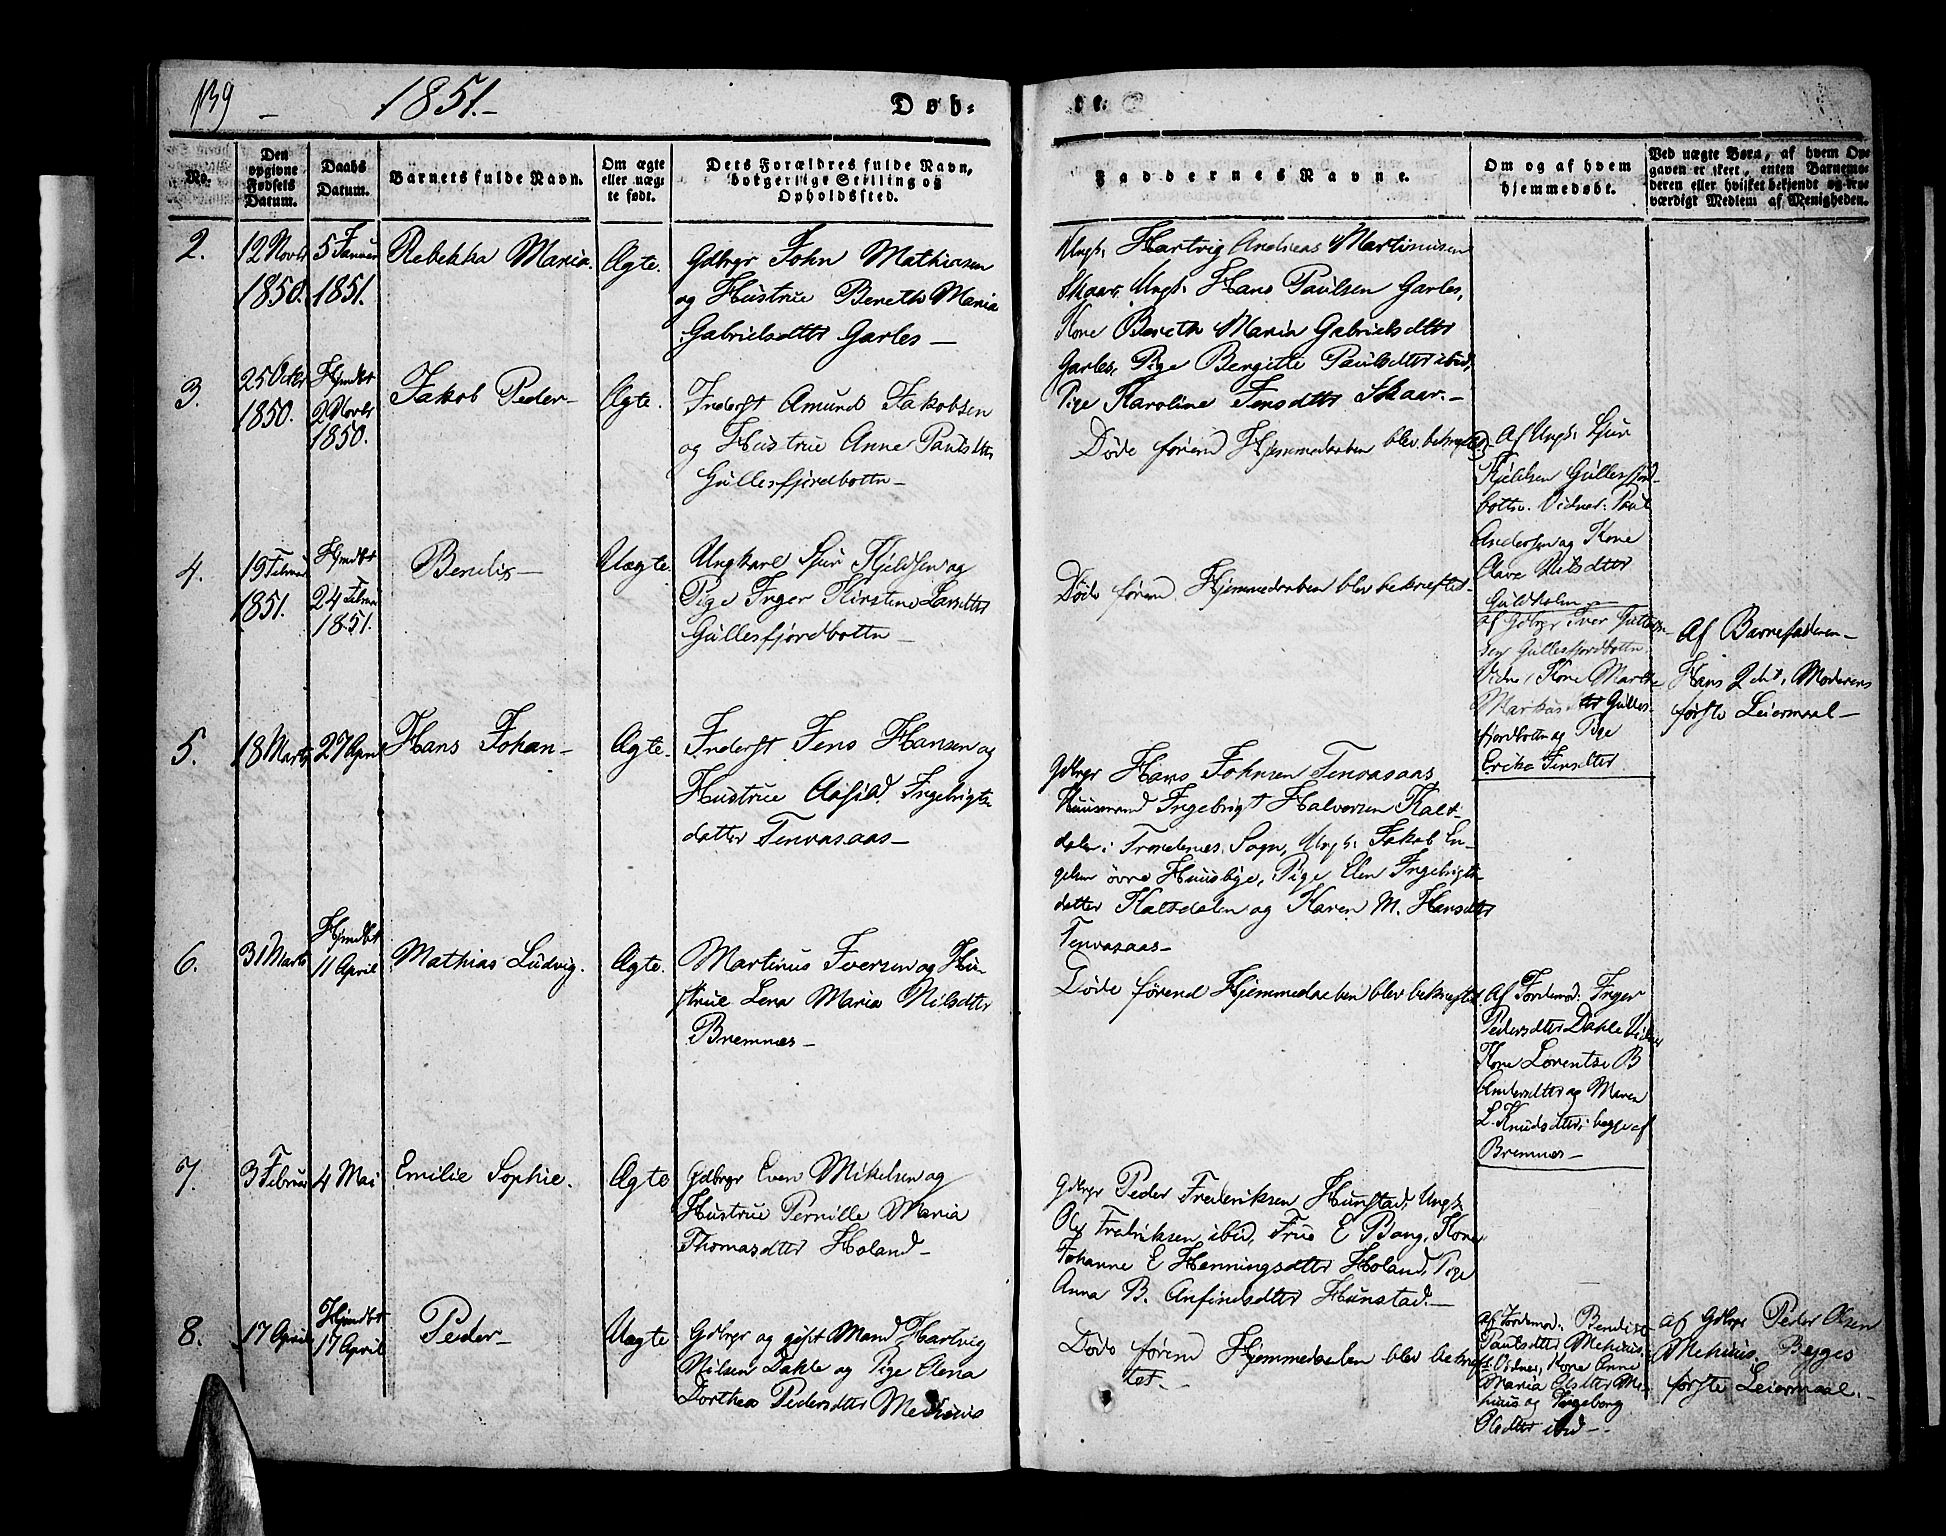 139 1851. Døb- te.
No.
Den opgivne Fødsels Datum.
Daabs Datum.
Barnets fulde Navn.
Om ægte eller uægte født.
Dets Forældres fulde Navn, borgerlige Stilling og Opholdssted.
Faddernes Navne.
Om og af hvem hjemmedøbt.
Ved uægte Børn, af hvem Opgaven er skeet, enten Barnemoderen eller hvilket bekjendt og troværdigt Medlem af Menigheden.
2.
12 Novbr
1850.
5 Januar
1851.
Rebekka Maria.
Ægte.
Gdbrgr John Mathiasen
og Hustrue Bereth Maria
Gabrielsdtter Garles —
Ungk. Hartvig Andreas Martinusen
Skaar. Ungk. Hans Paulsen Garles,
Kone Bereth Maria Gabrielsdtter
Garles, Pige Bergitte Paulsdtter ibid,
Pige Karoline Jensdtter Skaar. —
3.
25 Octbr
1850.
Hjmdbt
2 Novbr
1850.
Jakob Peder —
Ægte.
Inderst Amund Jakobsen
og Hustrue Anne Paulsdtter
Gullesfjordbottn —
Døde førend Hjemmedaaben blev bekræftet.
Af Ungk. Sjur
Kjeldsen Gullesfjord-
bottn. Vidner: Paul
Andersen og Kone
Olava Nilsdtter
Guldholm —
4.
19 Februar
1851.
Hjmdbt
24 Februar
1851.
Bendix —
Uægte.
Ungkarl Sjur Kjeldsen og
Pige Inger Kirstine Larsdtter
Gullesfjordbottn —
Døde førend Hjemmedaaben blev bekræftet.
af Gdbrgr Iver
Gullesfjordbottn
Vidne, Kone Marthe
Markusdtter Gulles-
fjordbottn og Pige
Erika Jensdtter
Af Barnefaderen —
Hans 2det, Moderens
første Leiermaal —
5.
18 Marts
27 April
Hans Johan —
Ægte.
Inderst Jens Hansen og
Hustrue Aasild Ingebrigts-
datter Tenvasaas —
Gdbrgr Hans Johnsen Tenvasaas,
Huusmand Ingebrigt Halvorsen Kals-
dalen i Trondenes Sogn, Ungk. Jakob En-
gelsen øvre Huusbye, Pige Elen Ingebrigts-
datter Kalsdalen og Karen M. Hansdtter
Tenvasaas —
6.
31 Marts
Hjmdbt
11 April
Mathias Ludvig.
Ægte.
Martinus Iversen og Hu-
strue Lena Maria Nilsdtter
Bremnes —
Døde førend Hjemmedaaben blev bekræftet.
Af Jordemod: Inger
Pedersdtter Dahle Vidner
Kone Lorentse B
Andersdtter og Maren
L. Knudsdtter, begge af
Bremnes —
7.
3 Februar
4 Mai
Emilie Sophie.
Ægte
Gdbrgr Even Mikelsen og
Hustrue Pernille Maria
Thomasdtter Holand —
Gdbrgr Peder Frederiksen Hunstad, Ungk.
Ole Fredriksen ibid, Frue E Bang, Kone
Johanne E Henningsdtter Holand, Pige
Anna B. Anfindsdtter Hunstad. —
8.
17 April
Hjmdbt
17 April
Peder —
Uægte
Gdbrgr og gift Mand Hartvig
Nilsen Dahle og Pige Elena
Dorthea Pedersdtter Mehuus
Døde førend Hjemmedaaben blev bekræf-
tet —
af Jordemod: Bendikte
Paulsdtter Mehuus.
Vidner, Kone Anne
Maria Olsdtter Me-
huus og Ingeborg
Olsdtter ibid —
af Gdbrgr Peder Olsen
Mehuus, Begges
første Leiermaal. —